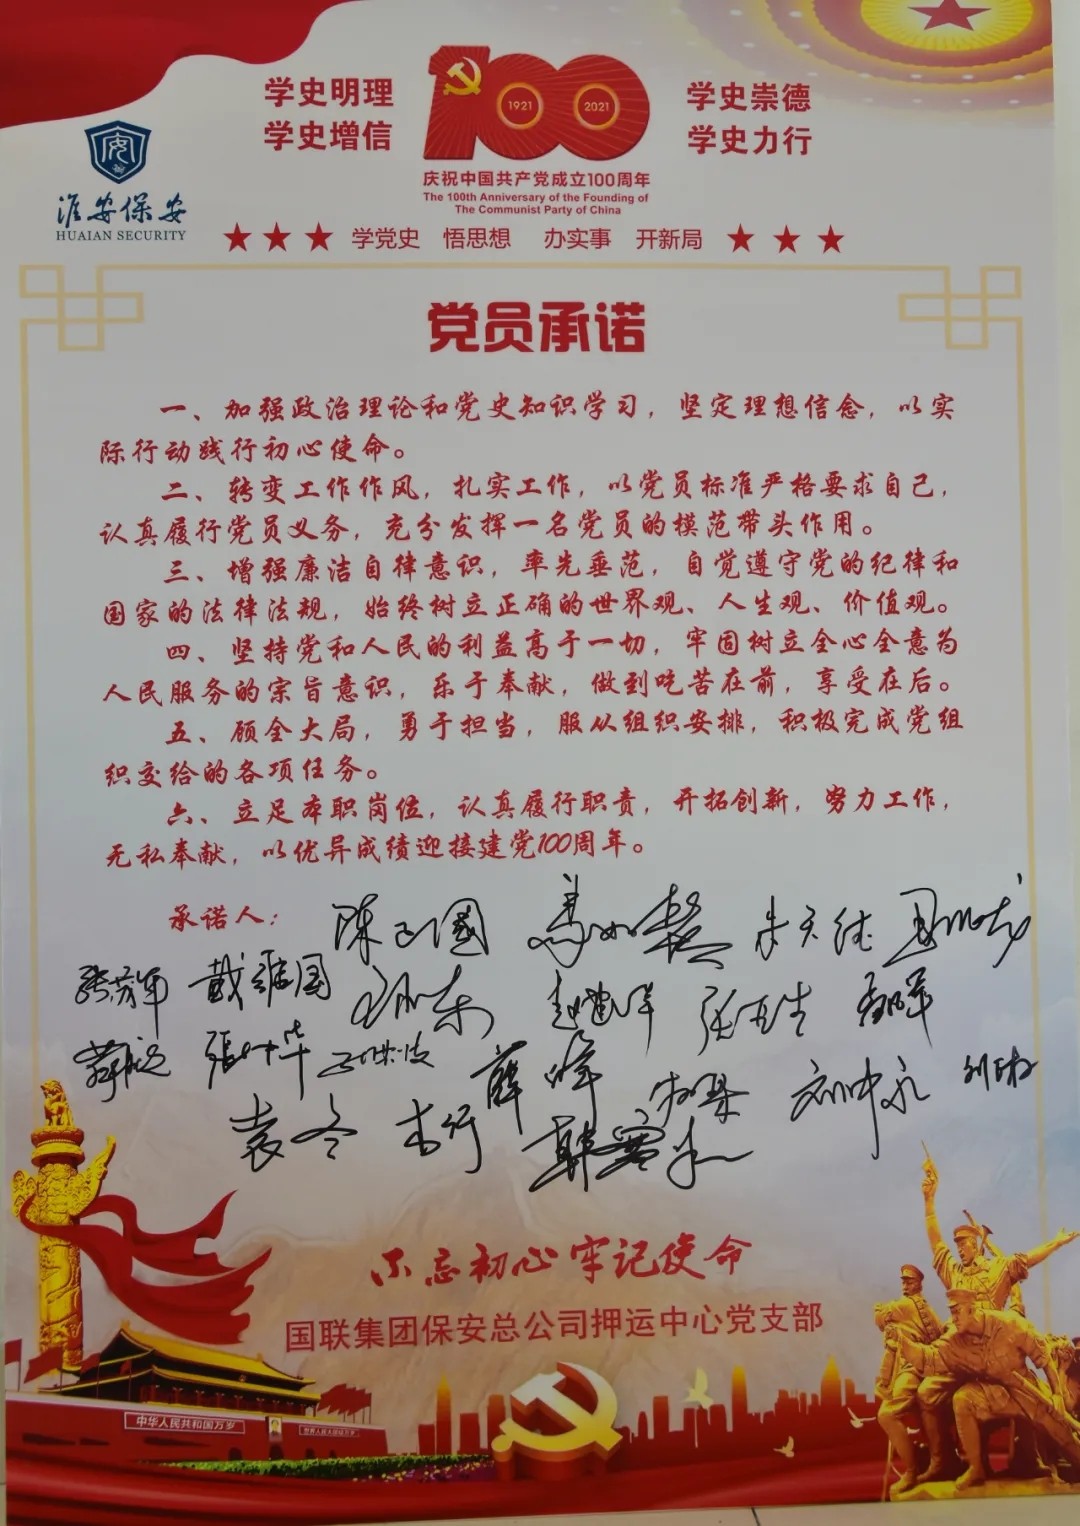 学史明理
学史增信
1921
2021
学史崇德
学史力行
庆祝中国共产党成立100周年
The 100th Anniversary of the Founding of
The Communist Party of China
安
淮安保安
HUAIAN SECURITY
学党史 悟思想 办实事 开新局
党员承诺
一、加强政治理论和党史知识学习，坚定理想信念，以实
际行动践行初心使命。
二、转变工作作风，扎实工作，以党员标准严格要求自己，
认真履行党员义务，充分发挥一名党员的模范带头作用。
三、增强廉洁自律意识，率先垂范，自觉遵守党的纪律和
国家的法律法规，始终树立正确的世界观、人生观、价值观。
四、坚持党和人民的利益高于一切，牢固树立全心全意为
人民服务的宗旨意识，乐于奉献，做到吃苦在前，享受在后。
五、顾全大局，勇于担当，服从组织安排，积极完成党组
织交给的各项任务。
六、立足本职岗位，认真履行职责，开拓创新，努力工作，
无私奉献，以优异成绩迎接建党100周年。
承诺人：
戴 国
张五生
薛峰
刘中永
袁冬
不忘初心牢记使命
国联集团保安总公司押运中心党支部
中华人民共和国万岁
世界人民大团结万岁